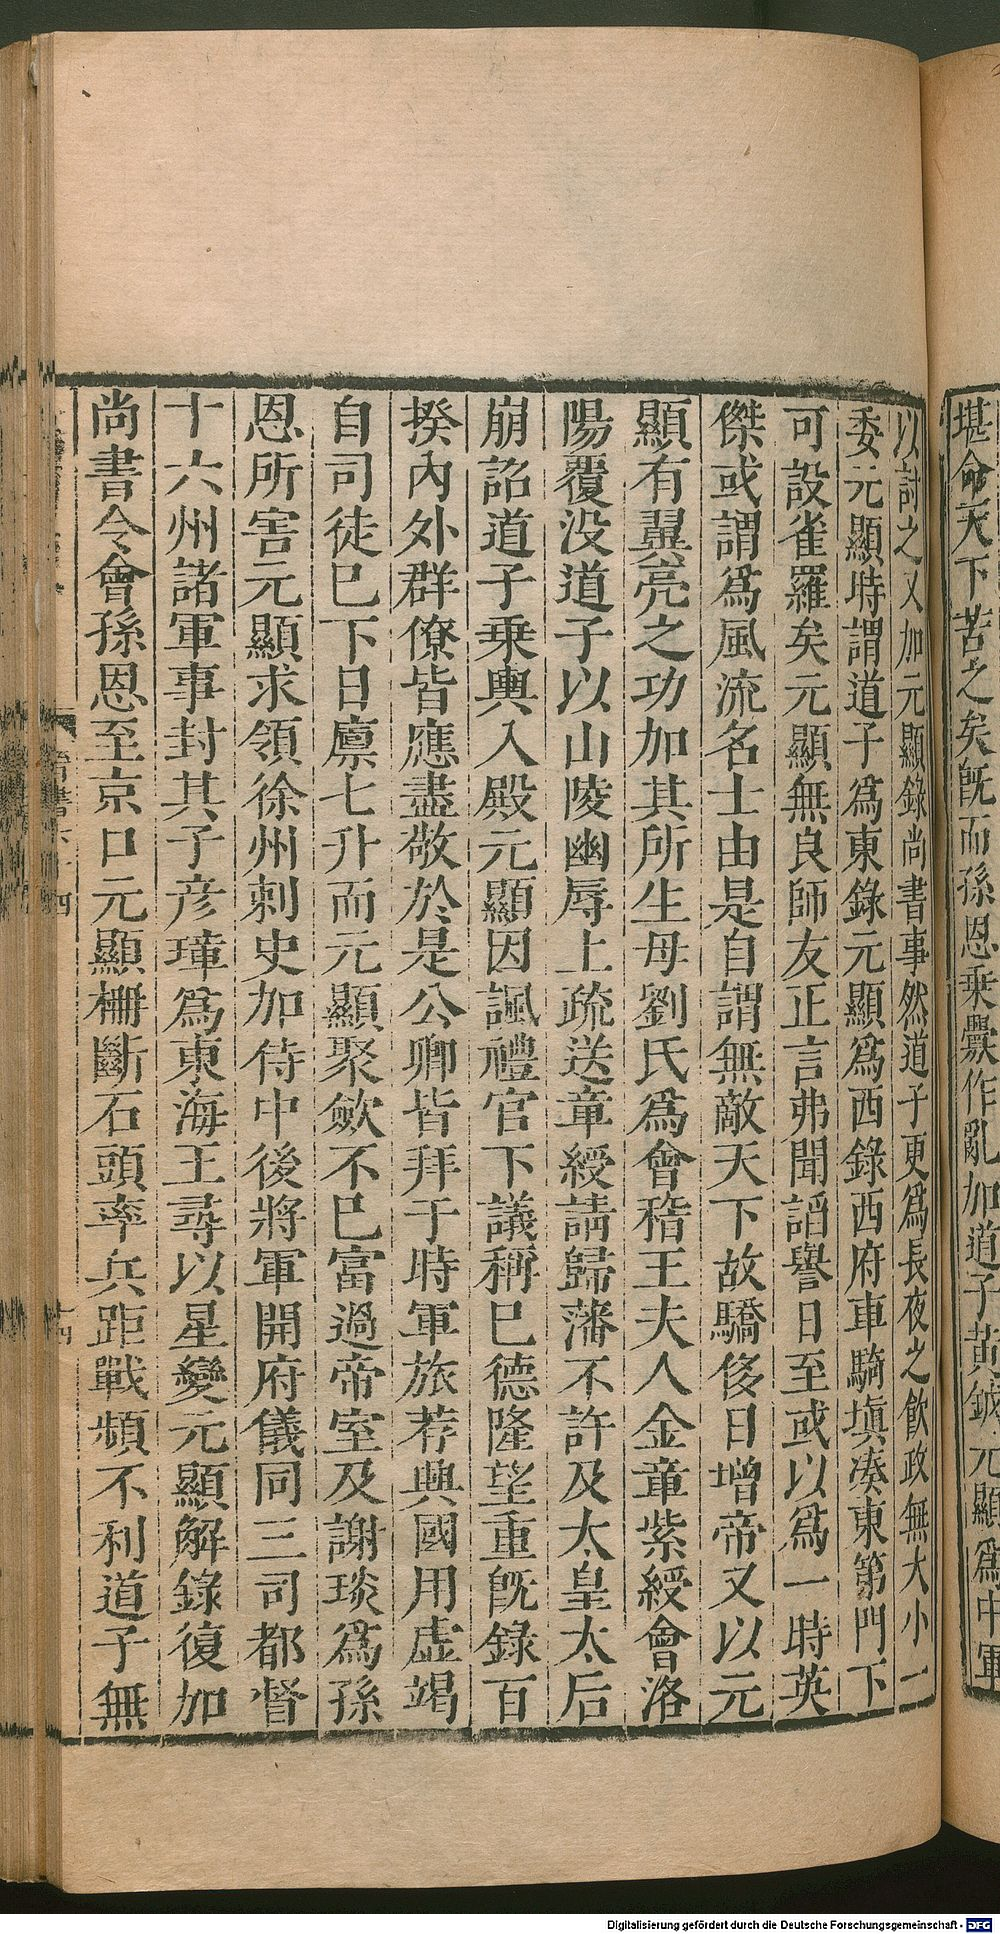 堪命天下苦之矣既而孫恩乗釁作亂加道子黄鉞元顯爲中軍
以討之又加元顯錄尚書事然道子更爲長夜之飲政無大小一
委元顯時謂道子爲東錄元顯爲西錄西府車騎塡湊東第門下
可設雀羅矣元顯無良師友正言弗聞謟譽日至或以爲一時英
傑或謂爲風流名士由是自謂無敵天下故驕侈日增帝又以元
顯有翼亮之功加其所生母劉氏爲會稽王夫人金章紫綬會洛
陽覆没道子以山陵幽辱上疏送章綬請歸藩不許及太皇太后
崩詔道子乗輿入殿元顯因諷禮官下議稱巳德隆望重旣錄百
揆內外群僚皆應盡敬於是公卿皆拜于時軍旅荐興國用虛竭
自司徒巳下日廪七升而元顯聚斂不巳富過帝室及謝琰爲孫
恩所害元顯求領徐州刺史加侍中後將軍開府儀同三司都督
十六州諸軍事封其子彦璋爲東海王尋以星變元顯解錄復加
尚書令會孫恩至京口元顯柵斷石頭率兵距戰頻不利道子無
Digitalisierung gefördert durch die Deutsche Forschungsgemeinschaft - DFG